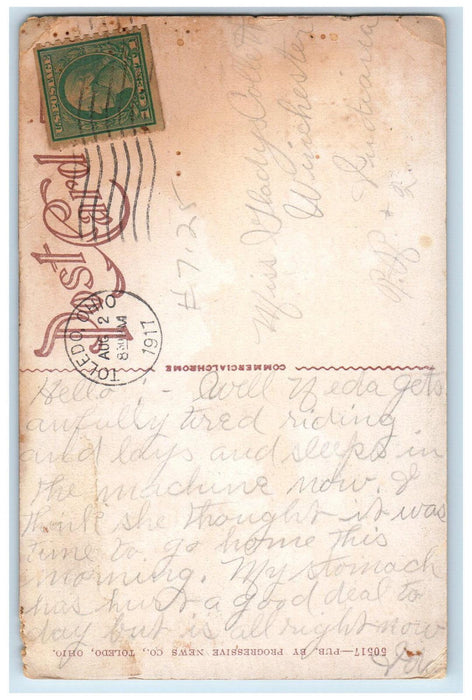 Post Card
TOLEDO, OHIO
AUG 2
8 30 AM
1917
Miss Glady Colbert
Winchester
Indiana
R.R. # 2
H7.25
COMMERCIALCHROME
Hello:- Well Neda gets
awfully tired riding
and lays and sleeps in
the machine now. I
think she thought it was
time to go home this
morning. My stomach
has hurt a good deal to
day but is all right now
50517—PUB. BY PROGRESSIVE NEWS CO., TOLEDO, OHIO.